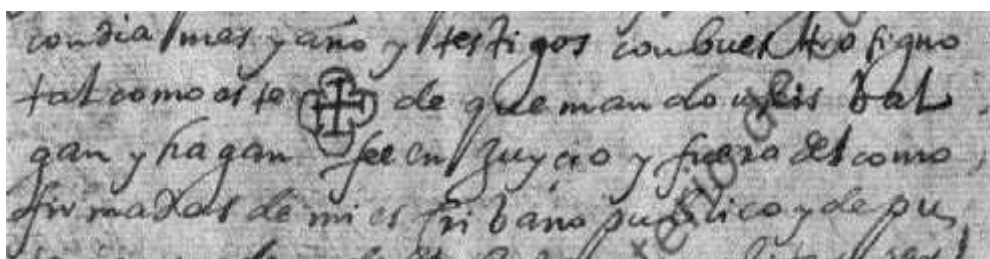 con dia mes y año y testigos con buestro signo
tal como este de que mando useis bal
gan y hagan fee en juycio y fuera del como
firmadas de mi escribano publico y de pu